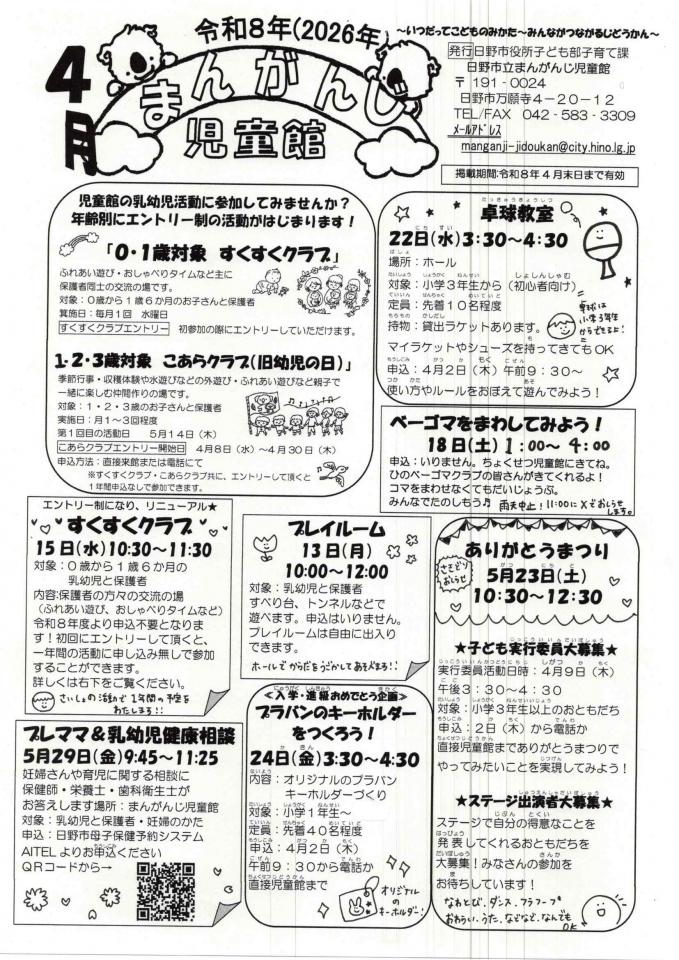 令和8年(2026年)
～いつだってこどものみかた～みんながつながるじどうかん～
4月
まんがんじ
児童館
発行 日野市役所子ども部子育て課
日野市立まんがんじ児童館
〒191-0024
日野市万願寺4-20-12
TEL/FAX 042-583-3309
メールアドレス
manganji-jidoukan@city.hino.lg.jp
掲載期間:令和8年4月末日まで有効
児童館の乳幼児活動に参加してみませんか?
年齢別にエントリー制の活動がはじまります!
「0・1歳対象 すくすくクラブ」
ふれあい遊び・おしゃべりタイムなど主に
保護者同士の交流の場です。
対象:0歳から1歳6か月のお子さんと保護者
実施日:毎月1回 水曜日
すくすくクラブエントリー 初参加の際にエントリーしていただけます。
1・2・3歳対象 こあらクラブ(旧幼児の日)」
季節行事・収穫体験や水遊びなどの外遊び・ふれあい遊びなど親子で
一緒に楽しむ仲間作りの場です。
対象:1・2・3歳のお子さんと保護者
実施日:月1～3回程度
第1回目の活動日 5月14日(木)
こあらクラブエントリー開始日 4月8日(水)～4月30日(木)
申込方法:直接来館または電話にて
※すくすくクラブ・こあらクラブ共に、エントリーして頂くと
1年間申込なしで参加できます。
たっきゅうきょうしつ
卓球教室
22日(水)3:30～4:30
場所:ホール
対象:小学3年生から(初心者向け)
定員:先着10名程度
持物:貸出ラケットあります。
マイラケットやシューズを持ってきてもOK
申込:4月2日(木)午前9:30～
使い方やルールをおぼえて遊んでみよう!
卓球は
小学3年生
からできるよ!
ベーゴマをまわしてみよう!
18日(土)1:00～4:00
申込:いりません。ちょくせつ児童館にきてね。
ひのベーゴマクラブの皆さんがきてくれるよ!
コマをまわせなくてもだいじょうぶ。
みんなでたのしもう♫ 雨天中止!11:00にXでおしらせします。
エントリー制になり、リニューアル★
すくすくクラブ
15日(水)10:30～11:30
対象:0歳から1歳6か月の
乳幼児と保護者
内容:保護者の方々の交流の場
(ふれあい遊び、おしゃべりタイムなど)
令和8年度より申込不要となりま
す!初回にエントリーして頂くと、
一年間の活動に申し込み無しで参加
することができます。
詳しくは右下をご覧ください。
さいしょの活動で1年間の予定を
わたしまる!!
プレイルーム
13日(月)
10:00～12:00
対象:乳幼児と保護者
すべり台、トンネルなどで
遊べます。申込はいりません。
プレイルームは自由に出入り
できます。
ホールでからだをうごかしてあそべまる!!
さきどり
おしらせ
ありがとうまつり
5月23日(土)
10:30～12:30
★子ども実行委員大募集★
実行委員活動日時:4月9日(木)
午後3:30～4:30
対象:小学3年生以上のおともだち
申込:2日(木)から電話か
直接児童館までありがとうまつりで
やってみたいことを実現してみよう!
★ステージ出演者大募集★
ステージで自分の得意なことを
発表してくれるおともだちを
大募集!みなさんの参加を
お待ちしています!
なわとび、ダンス、フラフープ
おわらい、うた、などなど、なんでも
OK
プレママ&乳幼児健康相談
5月29日(金)9:45～11:25
妊婦さんや育児に関する相談に
保健師・栄養士・歯科衛生士が
お答えします場所:まんがんじ児童館
対象:乳幼児と保護者・妊婦のかた
申込:日野市母子保健予約システム
AITELよりお申込ください
QRコードから→
<入学・進級おめでとう企画>
プラバンのキーホルダー
をつくろう!
24日(金)3:30～4:30
内容:オリジナルのプラバン
キーホルダーづくり
対象:小学1年生～
定員:先着40名程度
申込:4月2日(木)
午前9:30から電話か
直接児童館まで
オリジナル
のキーホルダー!